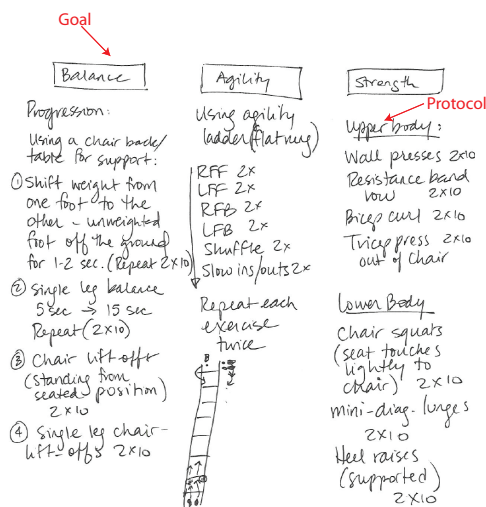 Goal
Balance
Progression:
Using a chair back/
table for support:
① Shift weight from
one foot to the
other - unweighted
foot off the ground
for 1-2 sec. (Repeat 2x10)
② Single leg balance
5 sec → 15 sec
Repeat (2x10)
③ Chair lift offs
(standing from
seated position)
2x10
④ Single leg chair-
lift-offs 2x10
Agility
Using agility
ladder (flat rung)
RFF 2x
LFF 2x
RFB 2x
LFB 2x
Shuffle 2x
Slow ins/outs 2x
Repeat each
exercise
twice
B
Strength
Protocol
Upper body:
Wall presses 2x10
Resistance band
row 2x10
Bicep curl 2x10
Tricep press 2x10
out of chair
Lower Body
Chair squats
(seat touches
lightly to
chair) 2x10
mini-diag. lunges
2x10
Heel raises
(supported)
2x10